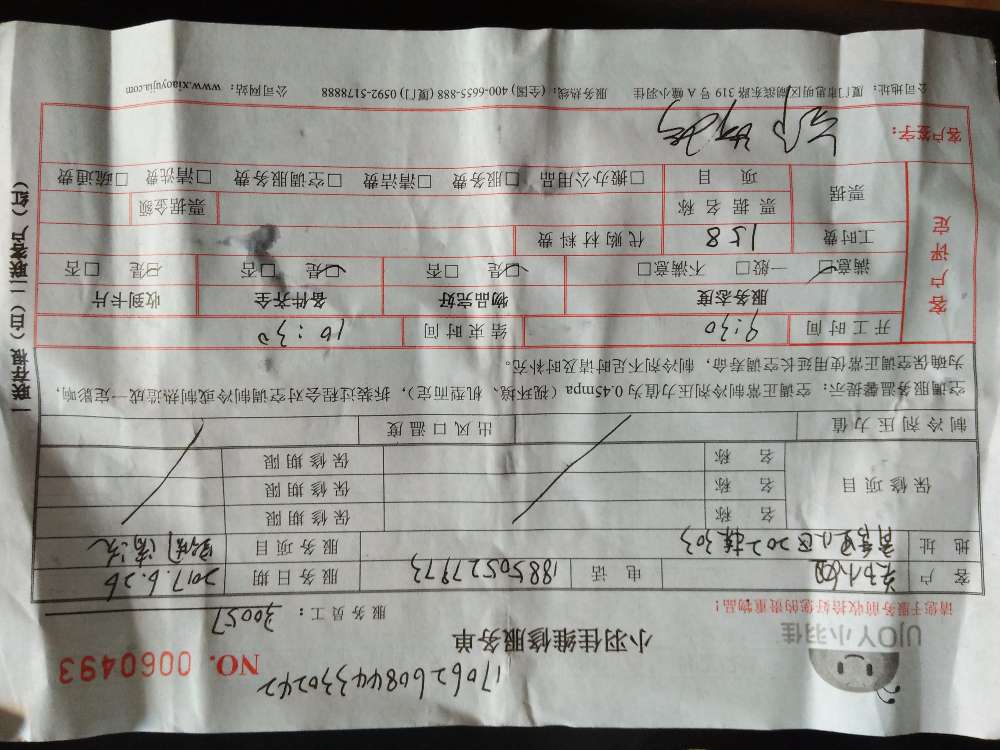 1706260844330242
NO. 0060493
UJOY小羽佳
小羽佳维修服务单
请您于服务前收拾好您的贵重物品！
服务员工： 30057
客户 电话 18850527973 服务日期 2017.6.26
地址 202 303 服务项目 清洗
保修项目 名称 保修期限
名称 保修期限
名称 保修期限
制冷剂压力值 出风口温度
空调服务温馨提示：空调正常制冷剂压力值为0.45mpa（视环境、机型而定），拆装过程会对空调制冷或制热造成一定影响，
为确保空调正常使用延长空调寿命，制冷剂不足时请及时补充。
客户评定
开工时间 9:30 结束时间 10:30
服务态度 物品完好 备件齐全 收到卡片
满意□ 一般□ 不满意□ □是 □否 □是 □否 □是 □否
工时费 158 代购材料费
票据 票据名称 票据金额
项目 □搬办公用品 □服务费 □清洁费 □空调服务费 □清洗费 □疏通费
客户签字：
公司地址：厦门市思明区湖滨东路319号A幢小羽佳 服务热线：(全国) 400-6655-888 (厦门) 0592-5178888 公司网站：www.xiaoyujia.com
一联存根（白）二联客户（红）